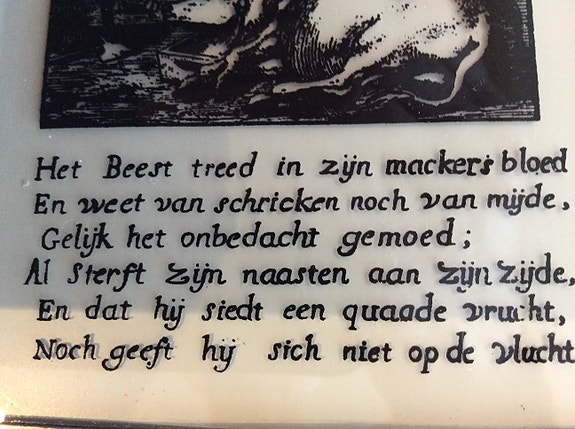 Het Beest treed in zijn mackers bloed
En weet van schricken noch van mijde,
Gelijk het onbedacht gemoed;
Al sterft zijn naasten aan zijn zijde,
En dat hij siedt een quaade vrucht,
Noch geeft hij sich niet op de vlucht